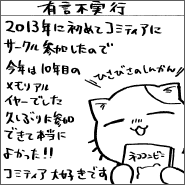 有言不実行
2013年に初めてコミティアに
サークル参加したので
今年は10年目の
メモリアル
イヤーでした
久しぶりに参加
できて本当に
よかった!!
コミティア大好きです
ひさびさのしんかん
ネココンビニ